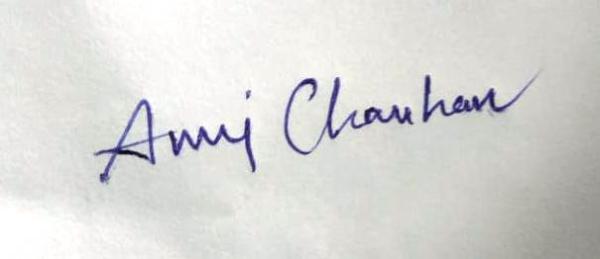 Anuj Chauhan